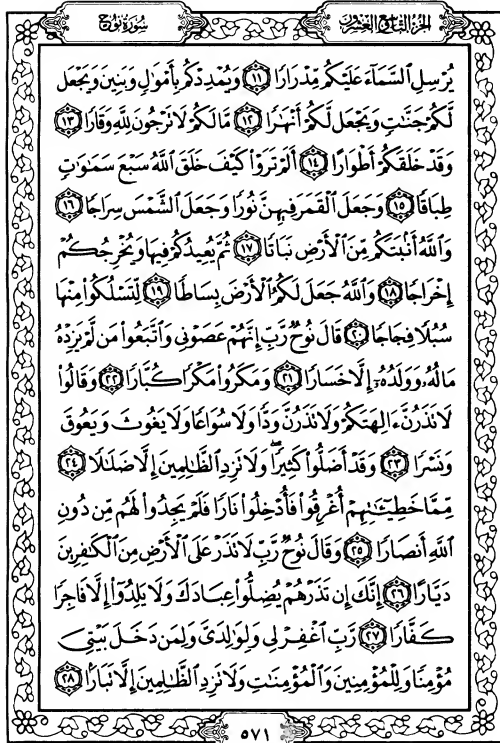 سُورَةُ نُوحٍ
الجُزْءُ التَّاسِعُ وَالعِشْرُونَ
يُرْسِلِ ٱلسَّمَآءَ عَلَيْكُم مِّدْرَارًا ۝١١ وَيُمْدِدْكُم بِأَمْوَٰلٍ وَبَنِينَ وَيَجْعَل
لَّكُمْ جَنَّٰتٍ وَيَجْعَل لَّكُمْ أَنْهَٰرًا ۝١٢ مَّا لَكُمْ لَا تَرْجُونَ لِلَّهِ وَقَارًا ۝١٣
وَقَدْ خَلَقَكُمْ أَطْوَارًا ۝١٤ أَلَمْ تَرَوْا۟ كَيْفَ خَلَقَ ٱللَّهُ سَبْعَ سَمَٰوَٰتٍ
طِبَاقًا ۝١٥ وَجَعَلَ ٱلْقَمَرَ فِيهِنَّ نُورًا وَجَعَلَ ٱلشَّمْسَ سِرَاجًا ۝١٦
وَٱللَّهُ أَنۢبَتَكُم مِّنَ ٱلْأَرْضِ نَبَاتًا ۝١٧ ثُمَّ يُعِيدُكُمْ فِيهَا وَيُخْرِجُكُمْ
إِخْرَاجًا ۝١٨ وَٱللَّهُ جَعَلَ لَكُمُ ٱلْأَرْضَ بِسَاطًا ۝١٩ لِّتَسْلُكُوا۟ مِنْهَا
سُبُلًا فِجَاجًا ۝٢٠ قَالَ نُوحٌ رَّبِّ إِنَّهُمْ عَصَوْنِى وَٱتَّبَعُوا۟ مَن لَّمْ يَزِدْهُ
مَالُهُۥ وَوَلَدُهُۥٓ إِلَّا خَسَارًا ۝٢١ وَمَكَرُوا۟ مَكْرًا كُبَّارًا ۝٢٢ وَقَالُوا۟
لَا تَذَرُنَّ ءَالِهَتَكُمْ وَلَا تَذَرُنَّ وَدًّا وَلَا سُوَاعًا وَلَا يَغُوثَ وَيَعُوقَ
وَنَسْرًا ۝٢٣ وَقَدْ أَضَلُّوا۟ كَثِيرًا ۖ وَلَا تَزِدِ ٱلظَّٰلِمِينَ إِلَّا ضَلَٰلًا ۝٢٤
مِّمَّا خَطِيٓـَٰٔتِهِمْ أُغْرِقُوا۟ فَأُدْخِلُوا۟ نَارًا فَلَمْ يَجِدُوا۟ لَهُم مِّن دُونِ
ٱللَّهِ أَنصَارًا ۝٢٥ وَقَالَ نُوحٌ رَّبِّ لَا تَذَرْ عَلَى ٱلْأَرْضِ مِنَ ٱلْكَٰفِرِينَ
دَيَّارًا ۝٢٦ إِنَّكَ إِن تَذَرْهُمْ يُضِلُّوا۟ عِبَادَكَ وَلَا يَلِدُوٓا۟ إِلَّا فَاجِرًا
كَفَّارًا ۝٢٧ رَّبِّ ٱغْفِرْ لِى وَلِوَٰلِدَىَّ وَلِمَن دَخَلَ بَيْتِىَ
مُؤْمِنًا وَلِلْمُؤْمِنِينَ وَٱلْمُؤْمِنَٰتِ وَلَا تَزِدِ ٱلظَّٰلِمِينَ إِلَّا تَبَارًۢا ۝٢٨
٥٧١